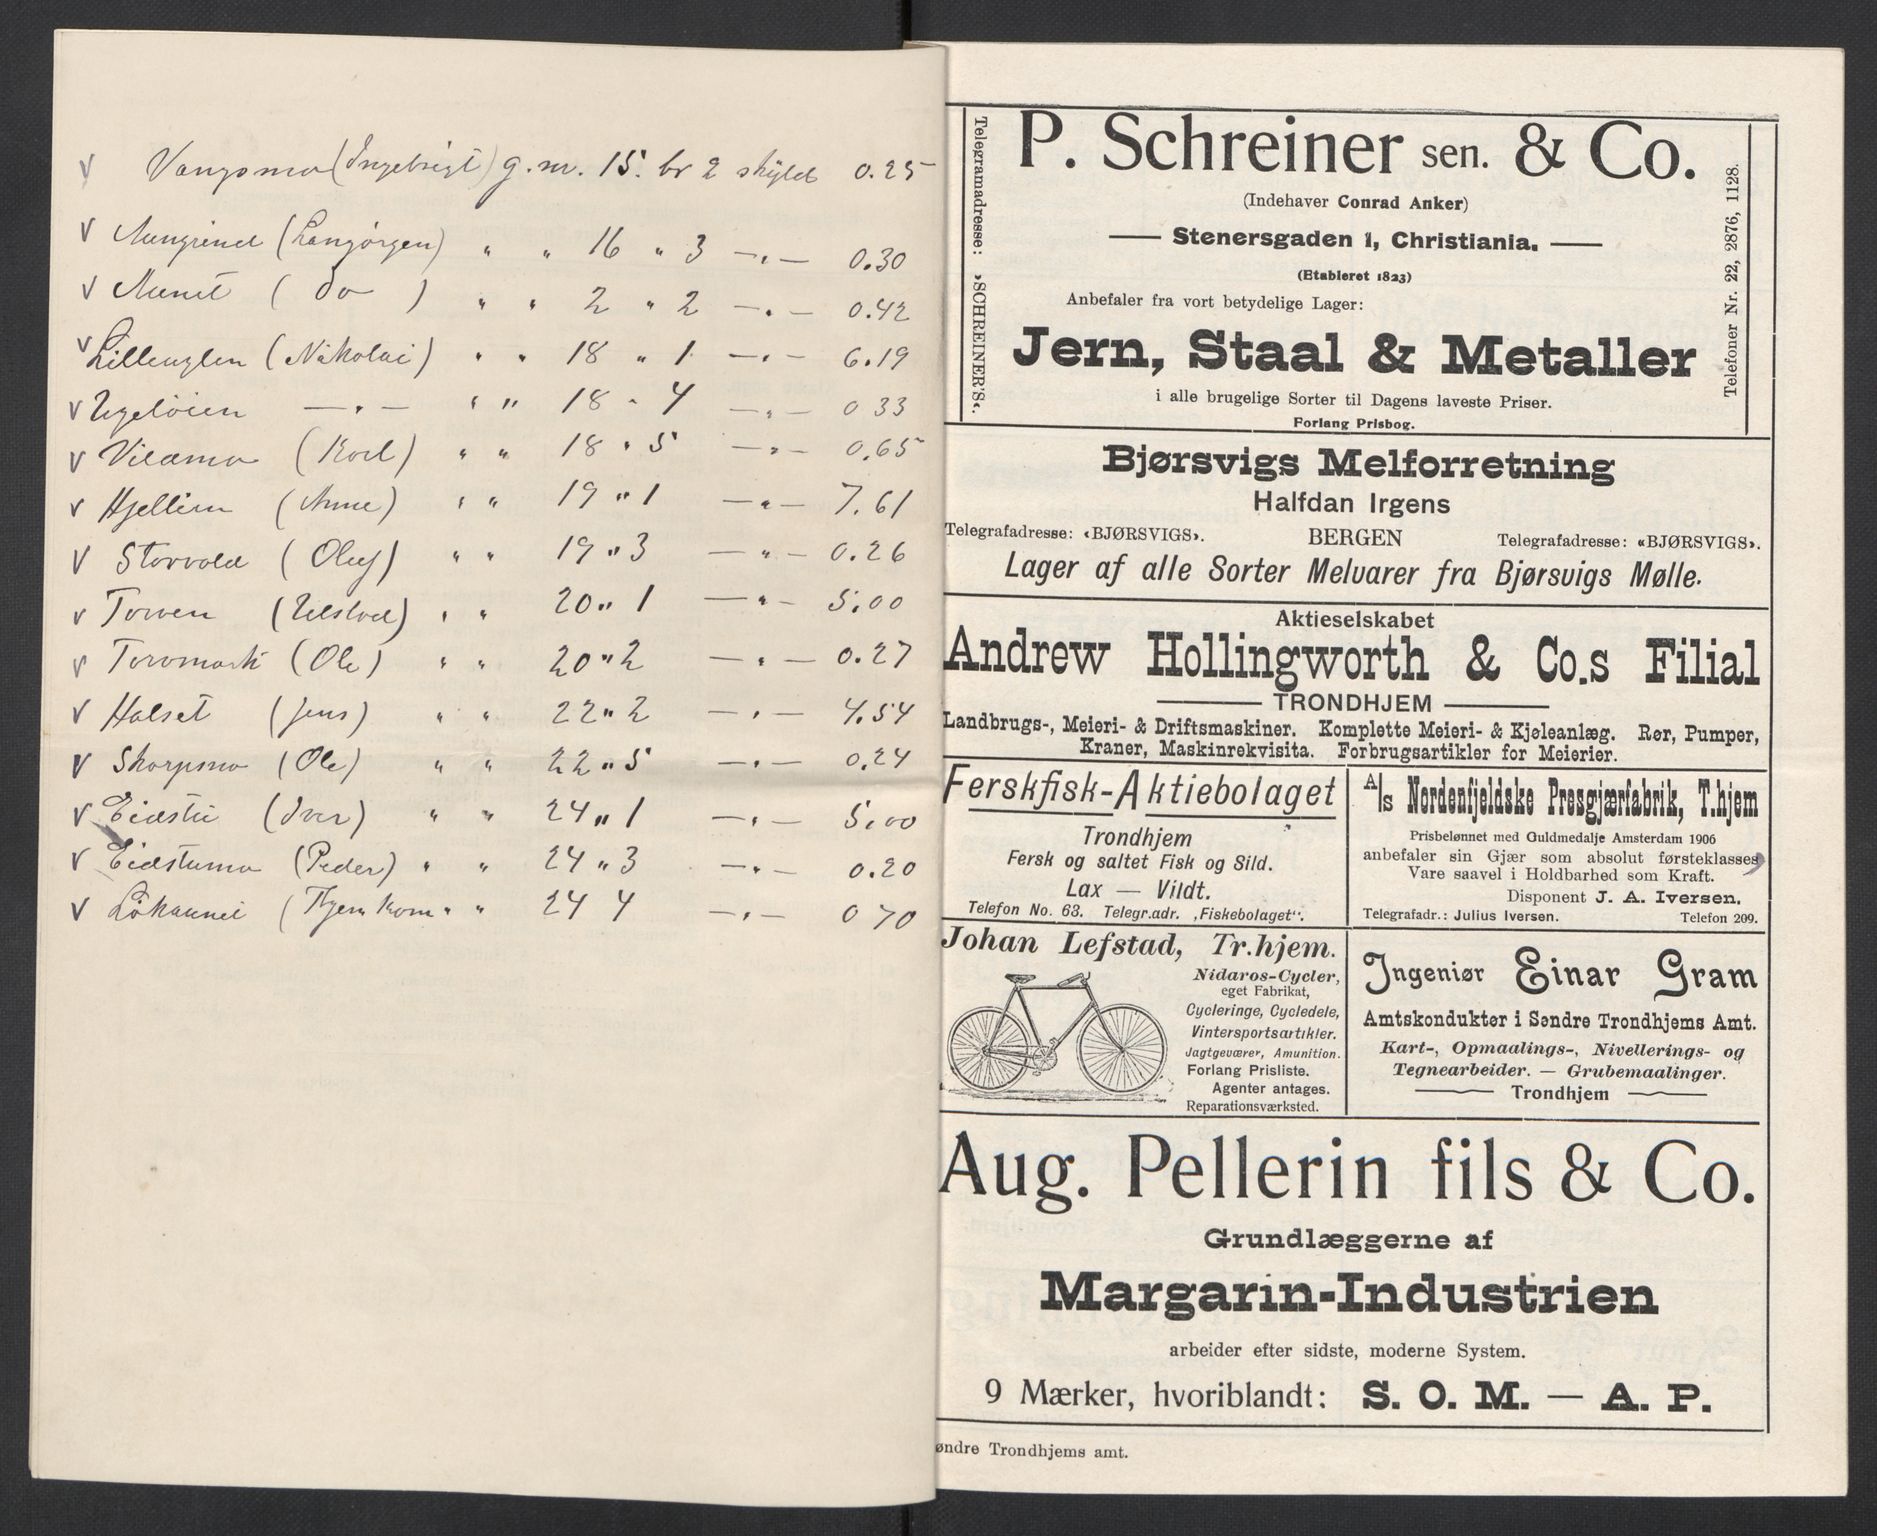 v Vangsmo (Ingebrigt) g. nr. 15. br 2 skyld 0.25
v (Langørgen) " " 16 " 3 —"— 0.30
v Aunet ( do ) " " 2 " 2 —"— 0.42
v Lilleuglen (Nikolai) " " 18 " 1 —"— 6.19
v Ugeløien —"— " " 18 - 4 —"— 0 33
v Vildmo (Karl) " " 18 " 5 —"— 0.65
v Hjellien (Arne) " " 19 " 1 —"— 7.61
v Storvold (Oluf) " " 19 " 3 —"— 0.26
v Torven " " 20 " 1 —"— 5.00
v Toromark (Ole) " " 20 " 2 —"— 0.27
v Halset (Jens) " " 22 " 2 —"— 4.54
v Skarpsmo (Ole) " " 22 " 5 —"— 0.24
v Eidstu (Iver) " " 24 " 1 —"— 5.00
v Eidstumo (Peder) " " 24 " 3 —"— 0.20
v Løkaunet (Hjemkom " " 24 4 —"— 0 70
Telegramadresse: »SCHREINER'S«.
P. Schreiner sen. & Co.
(Indehaver Conrad Anker)
— Stenersgaden 1, Christiania. —
(Etableret 1823)
Anbefaler fra vort betydelige Lager:
Jern, Staal & Metaller
i alle brugelige Sorter til Dagens laveste Priser.
Forlang Prisbog.
Telefoner Nr. 22, 2876, 1128.
Bjørsvigs Melforretning
Halfdan Irgens
Telegrafadresse: «BJØRSVIGS». BERGEN Telegrafadresse: «BJØRSVIGS».
Lager af alle Sorter Melvarer fra Bjørsvigs Mølle.
Aktieselskabet
Andrew Hollingworth & Co.s Filial
— TRONDHJEM —
Landbrugs-, Meieri- & Driftsmaskiner. Komplette Meieri- & Kjøleanlæg. Rør, Pumper,
Kraner, Maskinrekvisita. Forbrugsartikler for Meierier.
Ferskfisk-Aktiebolaget
Trondhjem
Fersk og saltet Fisk og Sild.
Lax — Vildt.
Telefon No. 63. Telegr.adr. „Fiskebolaget".
A/s Nordenfjeldske Presgjærfabrik, T.hjem
Prisbelønnet med Guldmedalje Amsterdam 1906
anbefaler sin Gjær som absolut førsteklasses
Vare saavel i Holdbarhed som Kraft.
Disponent J. A. Iversen.
Telegrafadr.: Julius Iversen. Telefon 209.
Johan Lefstad, Tr.hjem.
Nidaros-Cycler,
eget Fabrikat,
Cycleringe, Cycledele,
Vintersportsartikler.
Jagtgeværer, Amunition.
Forlang Prisliste.
Agenter antages.
Reparationsværksted.
Ingeniør Einar Gram
Amtskonduktør i Søndre Trondhjems Amt.
Kart-, Opmaalings-, Nivellerings- og
Tegnearbeider. — Grubemaalinger.
Trondhjem
Aug. Pellerin fils & Co.
Grundlæggerne af
Margarin-Industrien
arbeider efter sidste, moderne System.
9 Mærker, hvoriblandt: S. O. M. — A. P.
øndre Trondhjems amt.